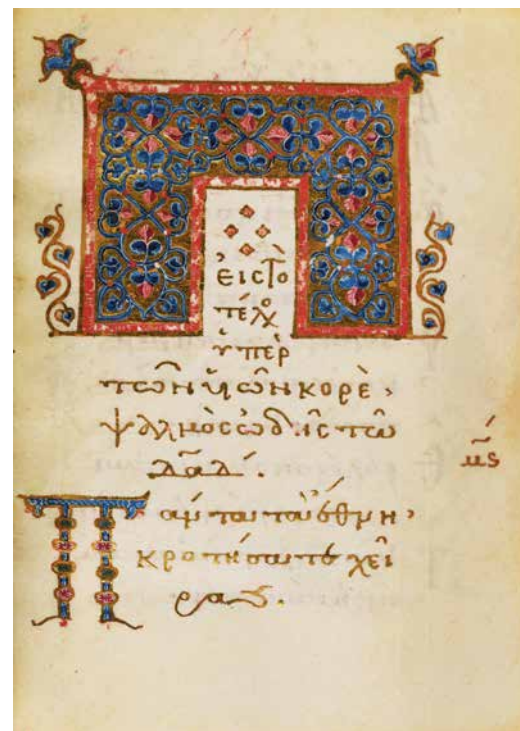 εἰς τὸ
τέλο
ὑπὲρ
τῶν ὑῶν κορὲ ·
ψαλμὸς ὠδῆς τῶ
δᾱδ ·
μϛ
Πάντα τὰ ἔθνη ·
κροτήσατε χεῖ
ρας ·